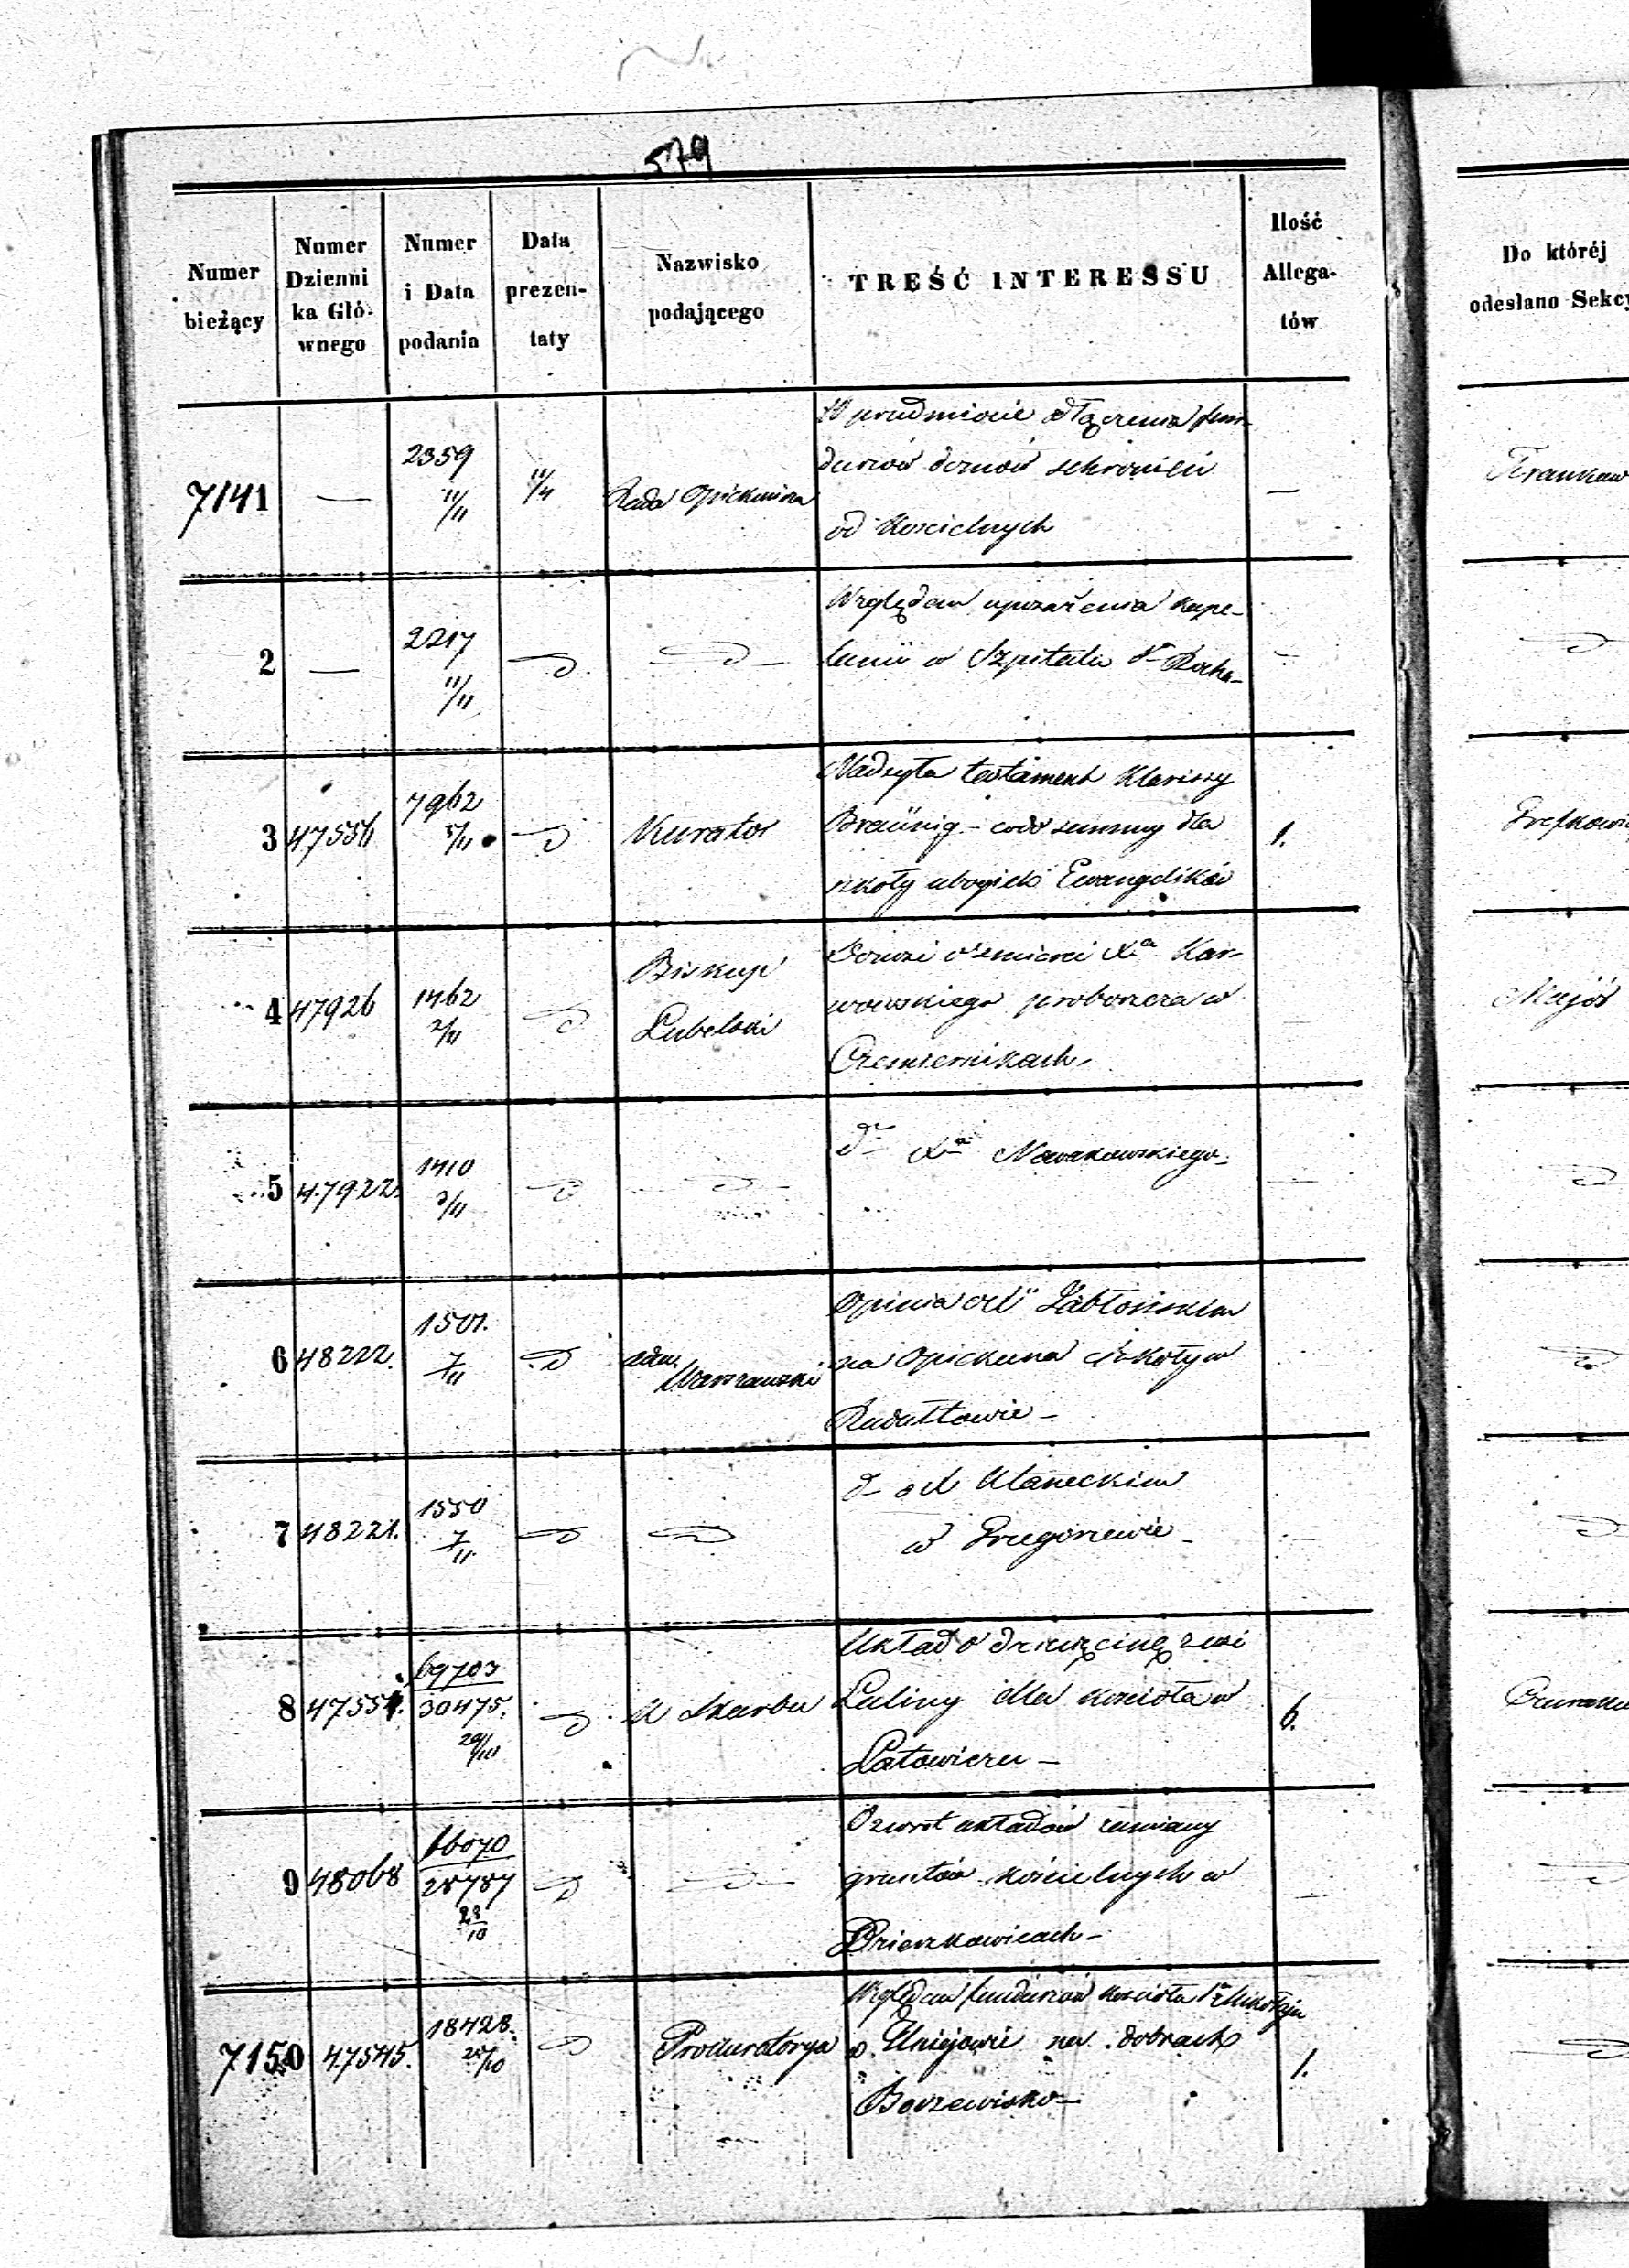 579
Numer bieżący
Numer Dzienni ka Głó- wnego
Numer i Data podania
Data prezen- taty
Nazwisko podającego
TREŚĆ INTERESSU
Ilość Allega- tów
Do któréj odesłano Sekcy
7141 — 2359 11/11 11/11 Rada Opiekuńcza
W przedmiocie odłączenia fun-
duszów domów schronień
od Kościelnych
—
2 — 2217 11/11
Względem uposażenia kape-
lanii w Szpitalu Sgo Rocha-
3 47556 7962 5/11 Kurator
Nadsyła testament Klarissy
Breünig - codo summy dla
szkoły ubogich Ewangelików
1.
4 47926 1462 2/11 Biskup
Lubelski
Donosi o śmierci Xa Kar-
wowskiego proboszcza w
Czemiernikach
5 47922 1410 3/11
do Xa Nowakowskiego
6 48222. 1501. 7/11 adm.
Warszawski
Opinia o
na Opiekuna
7 48221. 1550 7/11
w Grzegorzewie
8 47554. 69703 30475. 29/10 K Skarbu
Układ o dziesięcinę z wsi
Laliny dla kościoła w
Latowiczu -
6.
9 48068 66070 28787 28/10
O zwrot układów zamiany
gruntów kościelnych w
Dzierzkowicach -
7150 47545. 18428. 20/10 Prokuratorya
Względem funduszów kościoła Sgo Mikołaja
w Uniejowie na dobrach
Borzewisko -
1.
Major